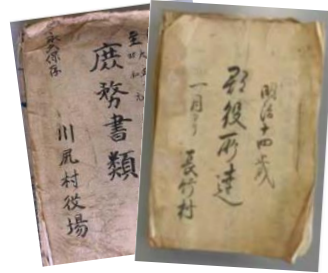 永久保存
庶務書類
川尻村役場
明治十四歳
郡役所達
一月ヨリ 長竹村